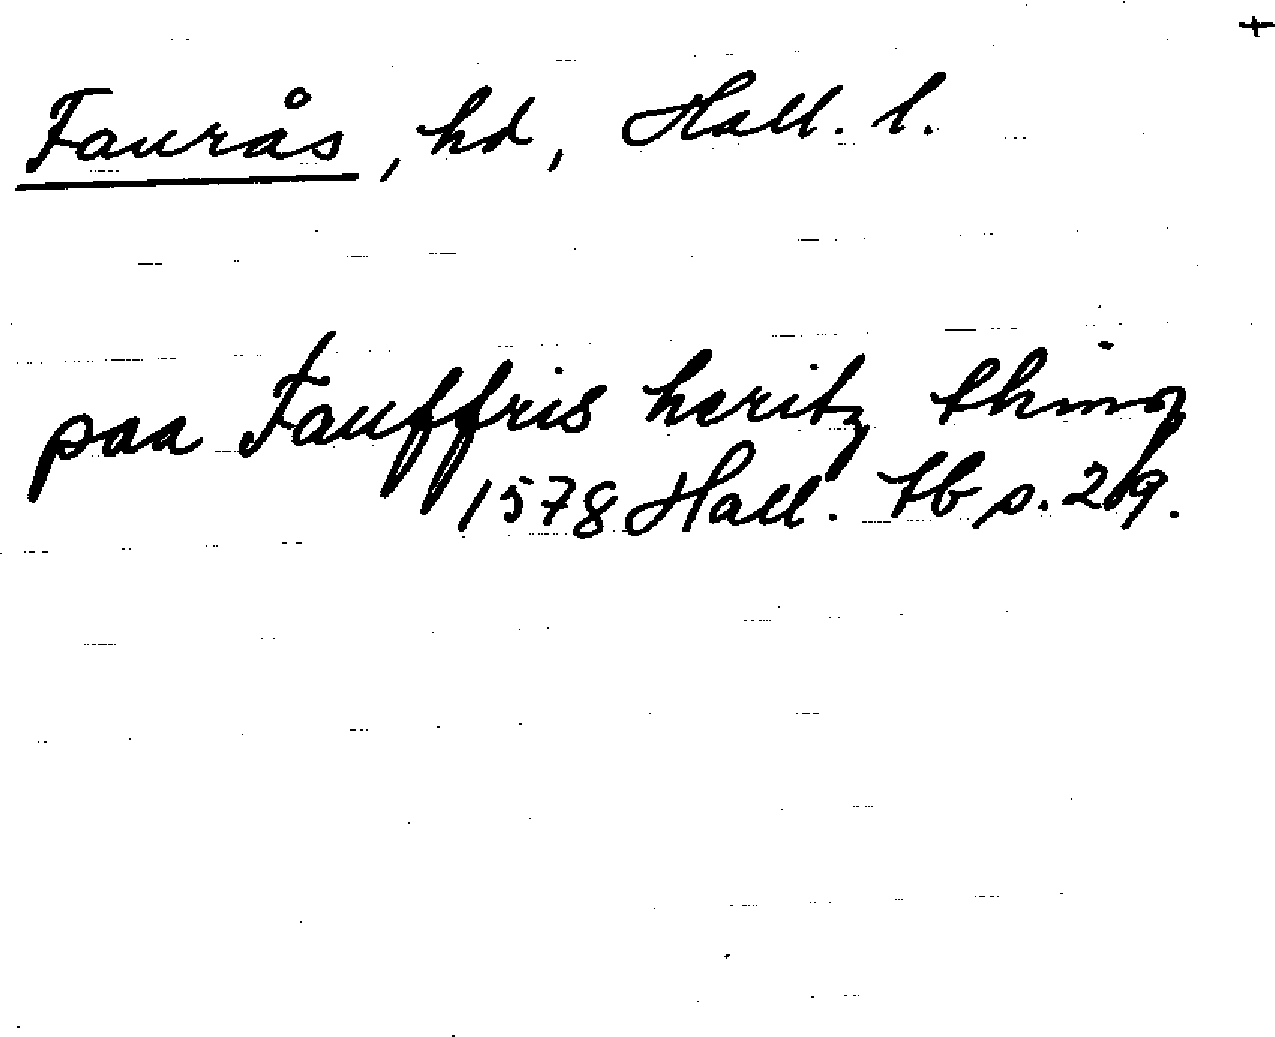 +
Faurås, hd, Hall. l.
paa Fauffris heritz thing
1578 Hall. tb s. 219.